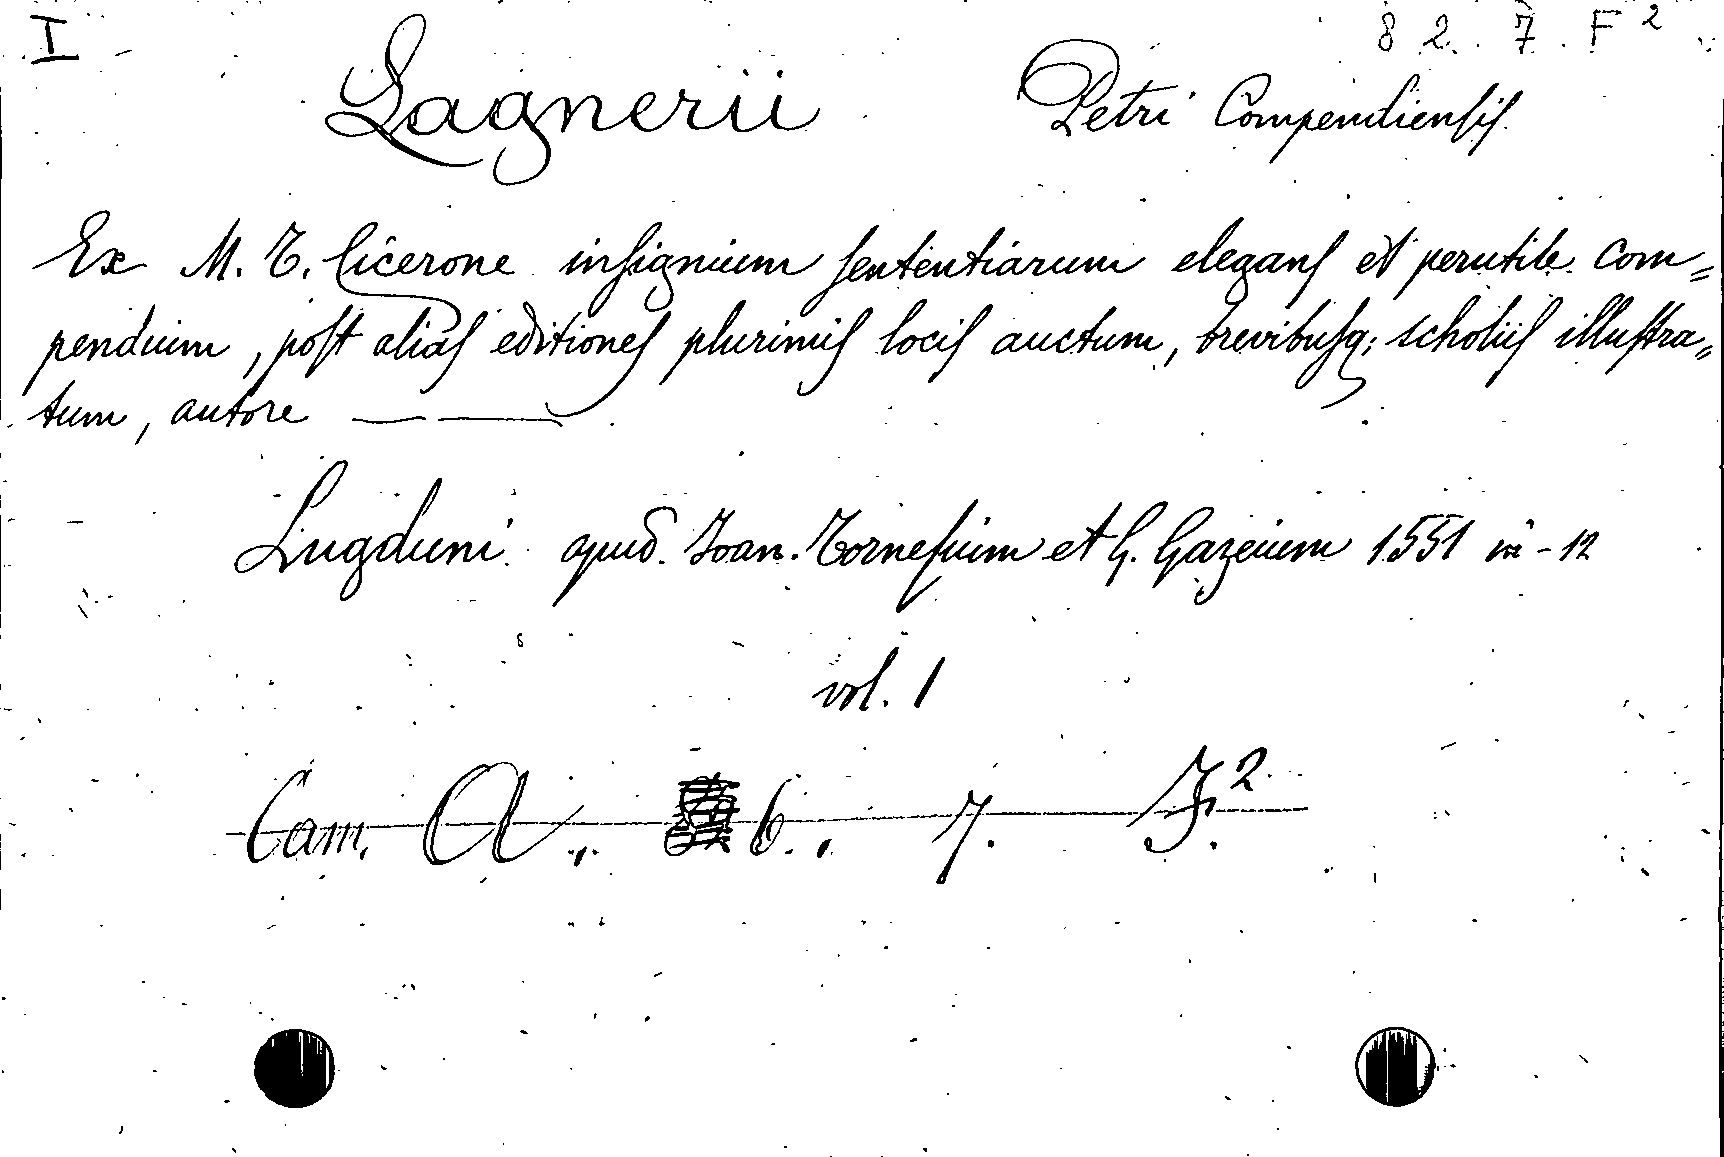 I 82.7.F²
Lagnerii Petri Compendiensis.
Ex M. T. Cicerone insignium sententiarum elegans et perutile com=
pendium, post alias editiones plurimis locis auctum, brevibusq; scholiis illustra=
tum, autore — —
Lugduni apud. Joan. Tornesium et G. Gazeium 1551 in-12
vol. 1
Cam. A., 6., 7. F².